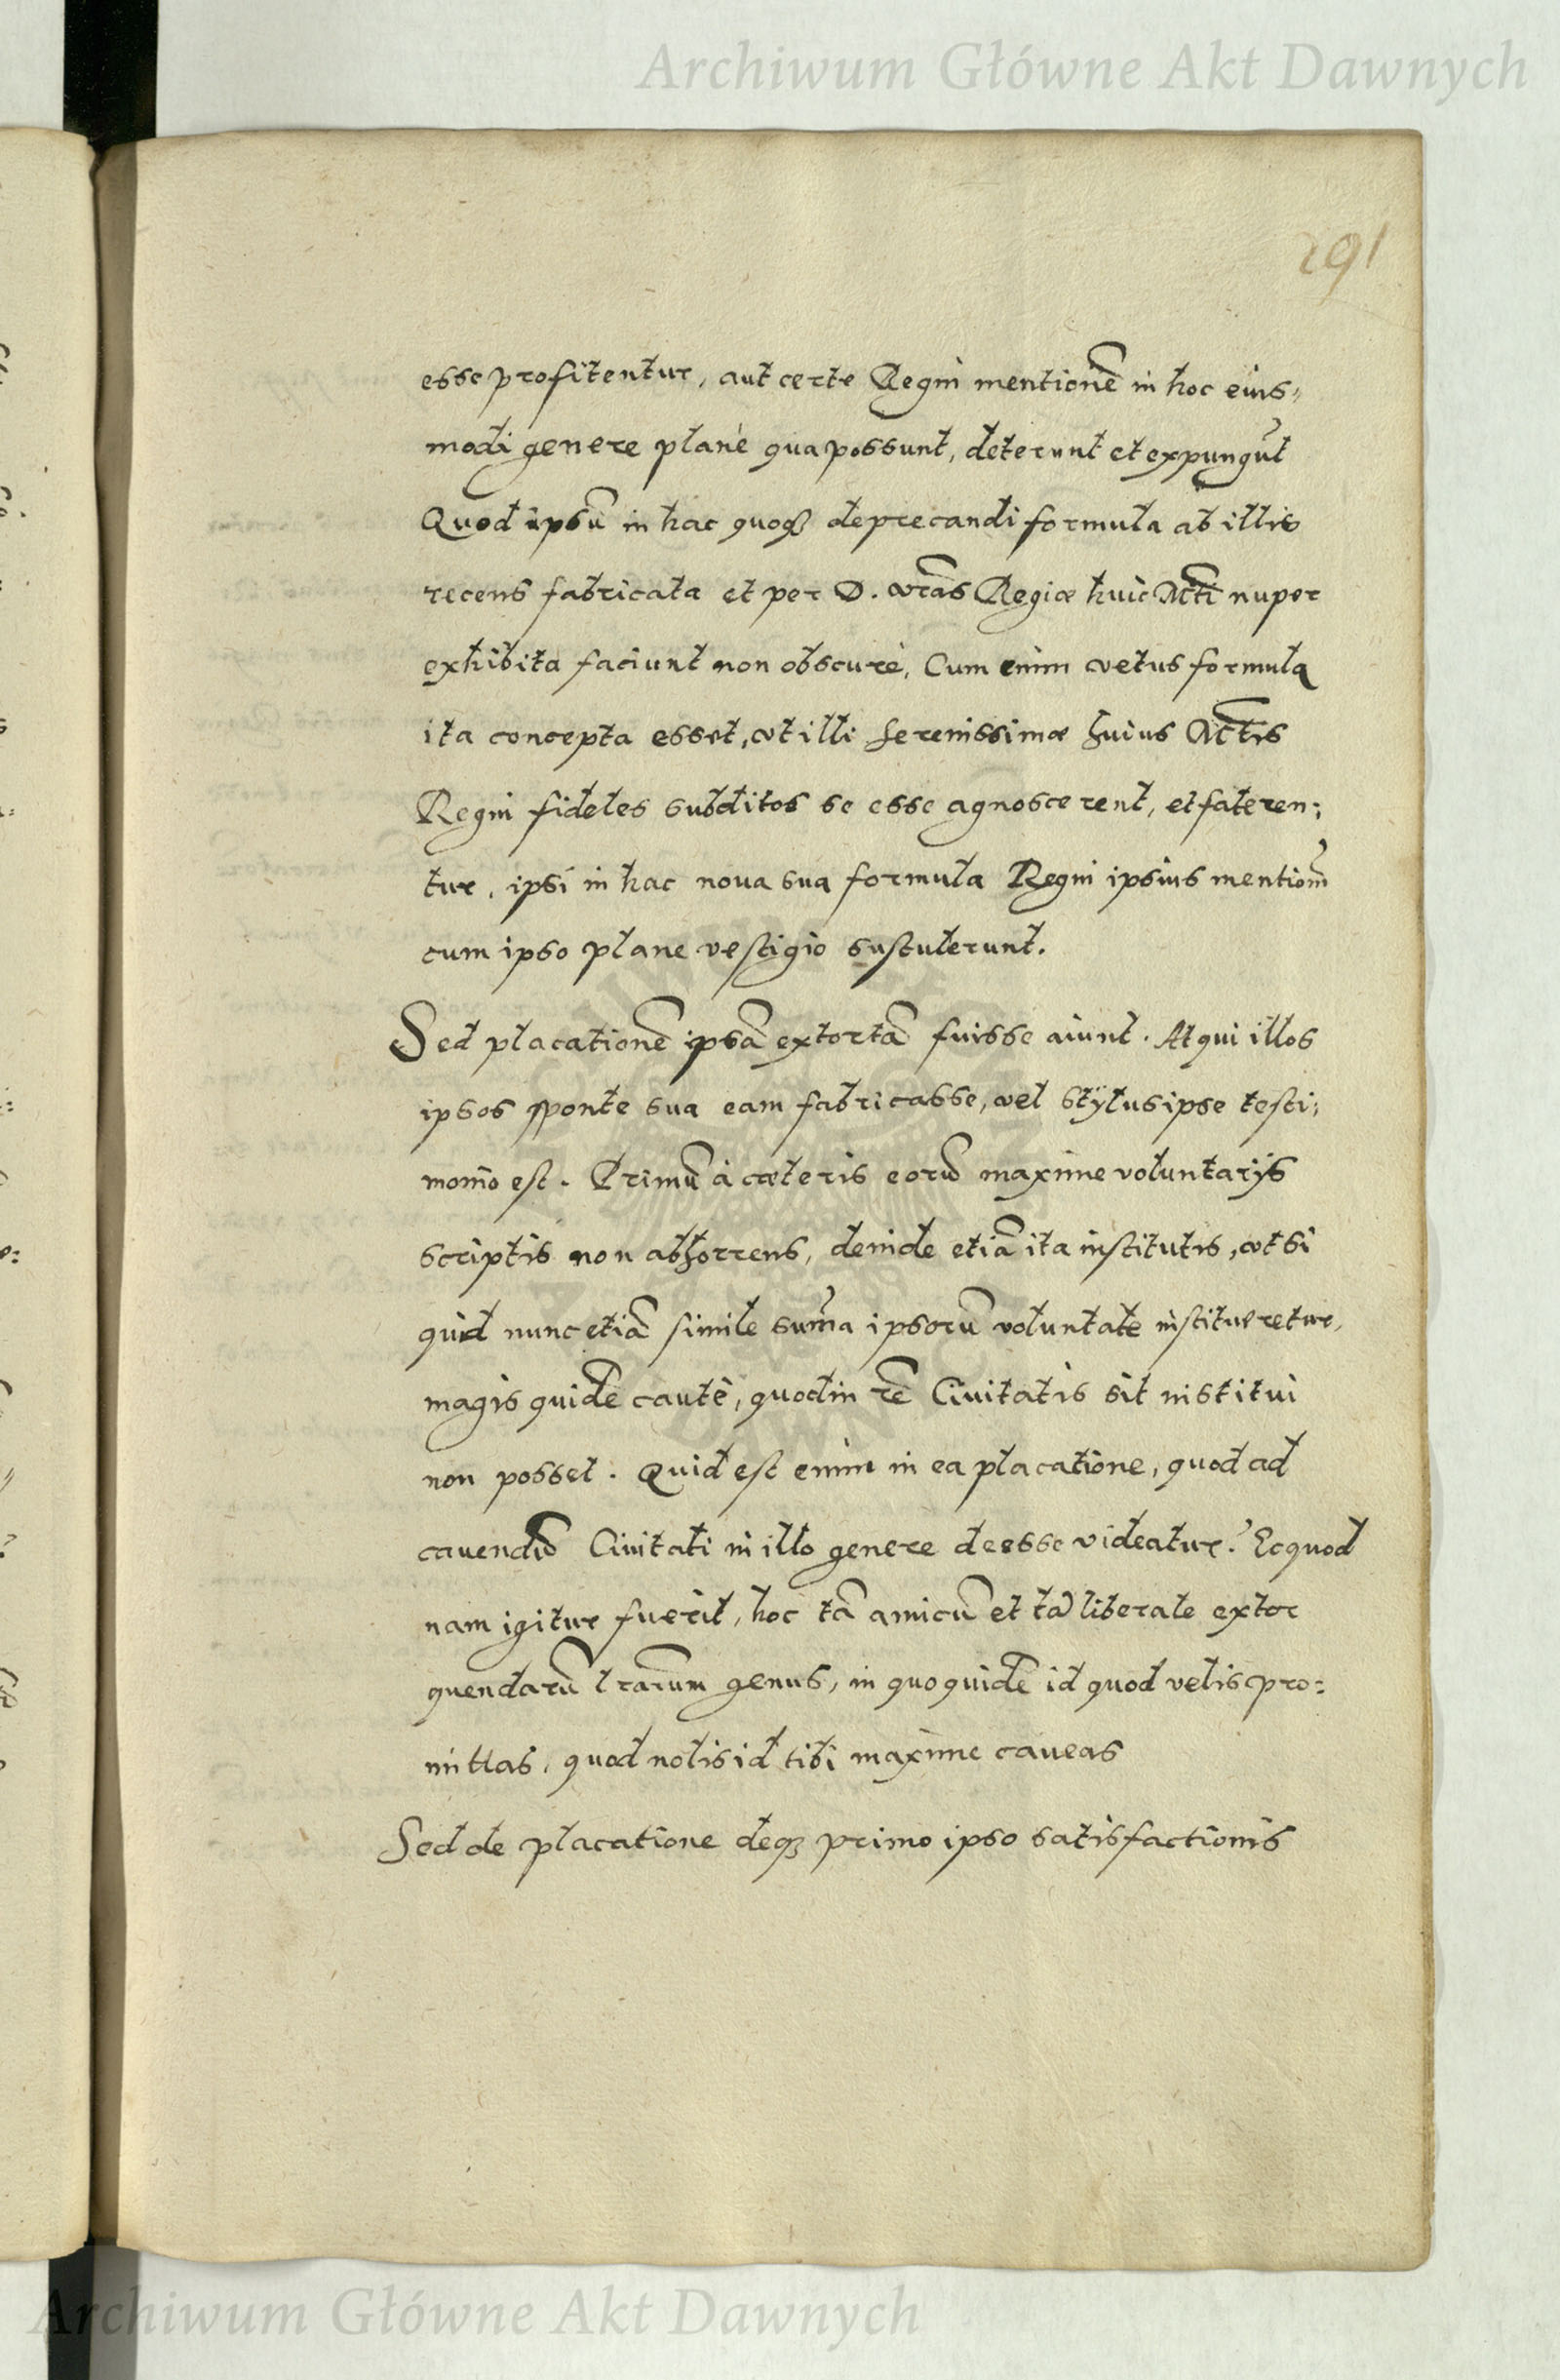 Archiwum Główne Akt Dawnych
291
esse profitentur, aut certe Regni mentionē in hoc eius„
modi genere planè qua possunt, deterunt et expungūt
Quod ipsū in hac quoqȝ deprecandi formula ab illis
recens fabricata et per D. vrās Regiæ huic Mtī nuper
exhibita faciunt non obscurè, Cum enim vetus formula
ita concepta esset, vt illi Serenissimæ huius Mtīs
Regni fideles subditos se esse agnoscerent, et fateren:
tur, ipsi in hac noua sua formula Regni ipsius mentionē
cum ipso plane vestigio sustulerunt.
Sed placationē ipsā extortā fuisse aiunt. At qui illos
ipsos sponte sua eam fabricasse, vel stÿlus ipse testi:
monio est. Primū à cæteris eorū maxime voluntarijs
scriptis non abhorrens, deinde etiā ita institutis, vt si
quid nunc etiā simile sum̄a ipsorū voluntate institueretur,
magis quidē cautè, quod in rē Ciuitatis sit institui
non posset. Quid est enim in ea placatione, quod ad
cauendū Ciuitati in illo genere deesse videatur? Ecquod
nam igitur fuerit, hoc tā amicū et tā liberale extor
quendarū lrarum genus, in quo quidē id quod velis pro:
mittas, quod nolis id tibi maxime caueas
Sed de placatione deqȝ primo ipso satisfactionis
Archiwum Główne Akt Dawnych